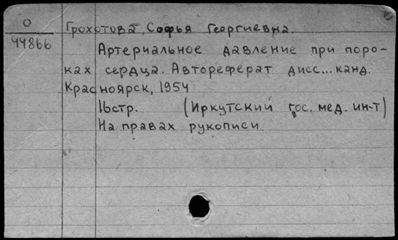 О
44866
Грохотова, Софья Георгиевна.
Артериальное давление при поро-
ках сердца. Автореферат дисс... канд.
Красноярск, 1954
16стр. (Иркутский гос. мед. ин-т)
На правах рукописи